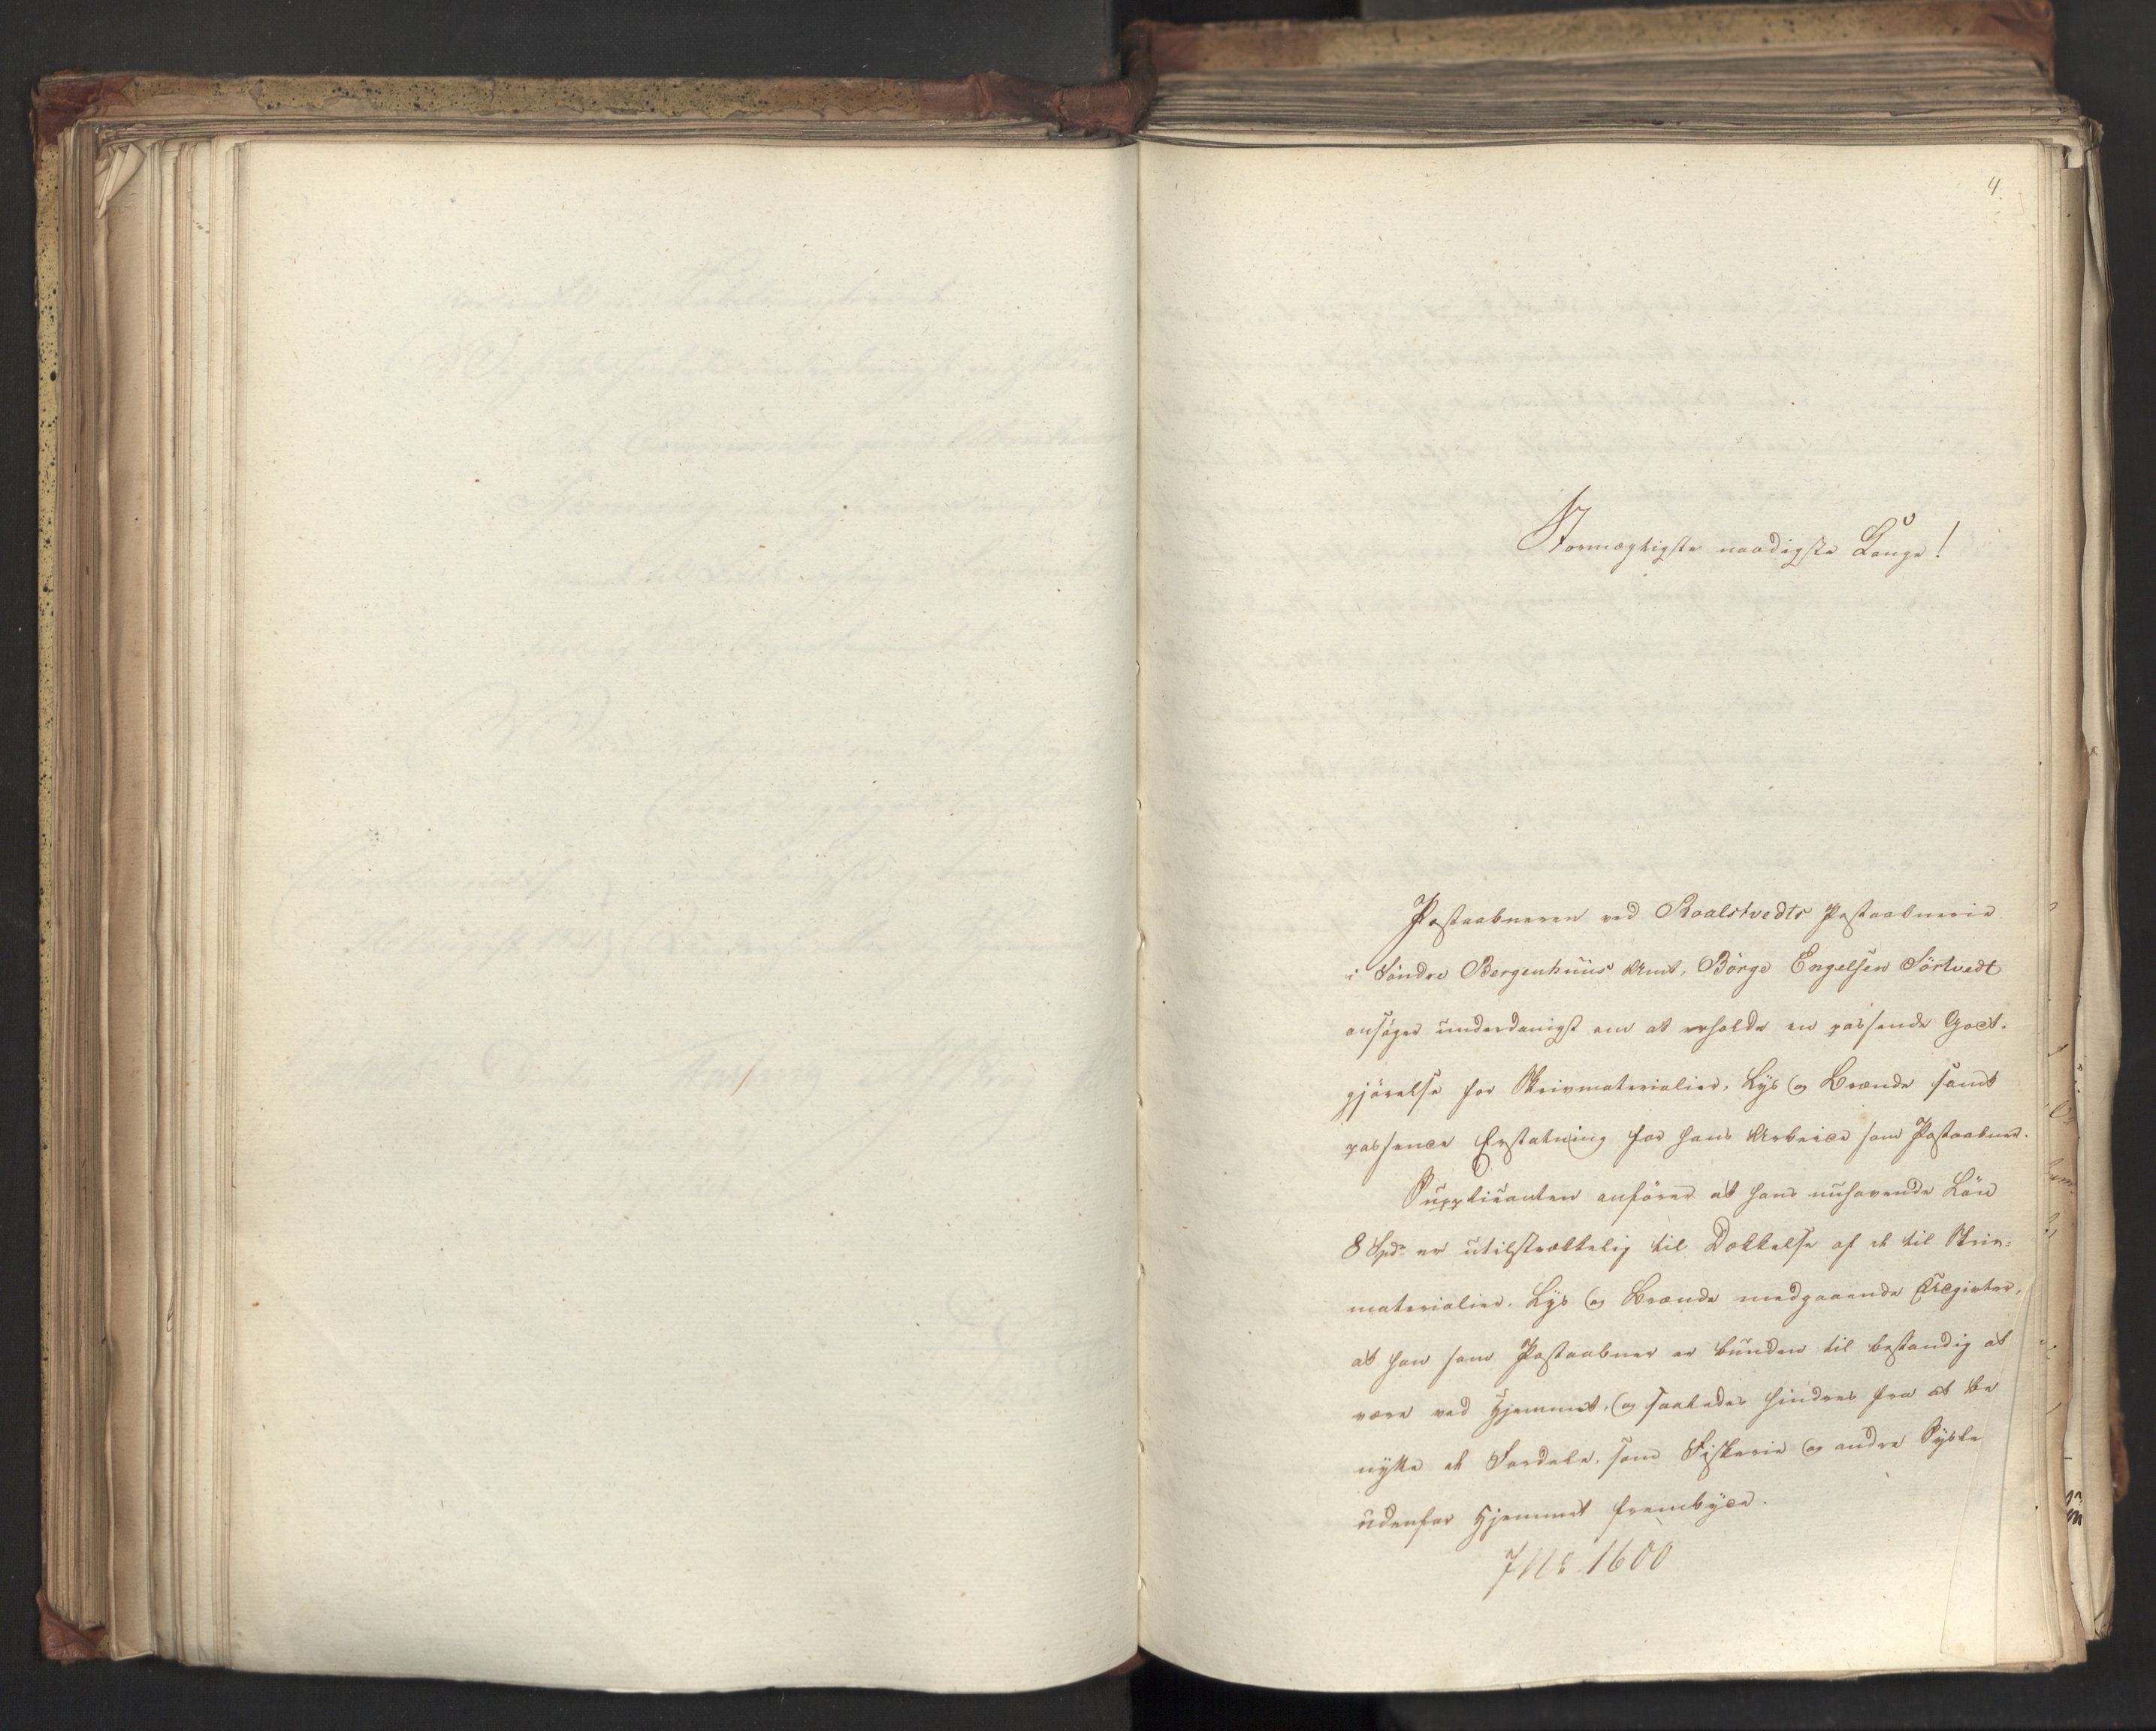 4.
Stormægtigste naadigste Konge!
Postaabneren ved Roalstvedts Postaabnerie
i Søndre Bergenhuus Amt, Börge Engelsen Sörtvedt
ansöger underdanigst om at erholde en passende Godt-
gjörelse for Skrivmaterialier, Lys og Brænde samt
passende Erstatning for hans Arbeide som Postaabner.
Supplicanten anförer at hans nuhavende Lön
8 Spd. er utilstrækkelig til Dækkelse af de til Skriv-
materialier, Lys og Brænde medgaaende Udgivter,
at han som Postaabner er bunden til bestandig at
være ved Hjemmet, og saaledes hindres fra at be
nytte de Fordele, som Fiskerie og andre Sysler
udenfor Hjemmet frembyde.
1600